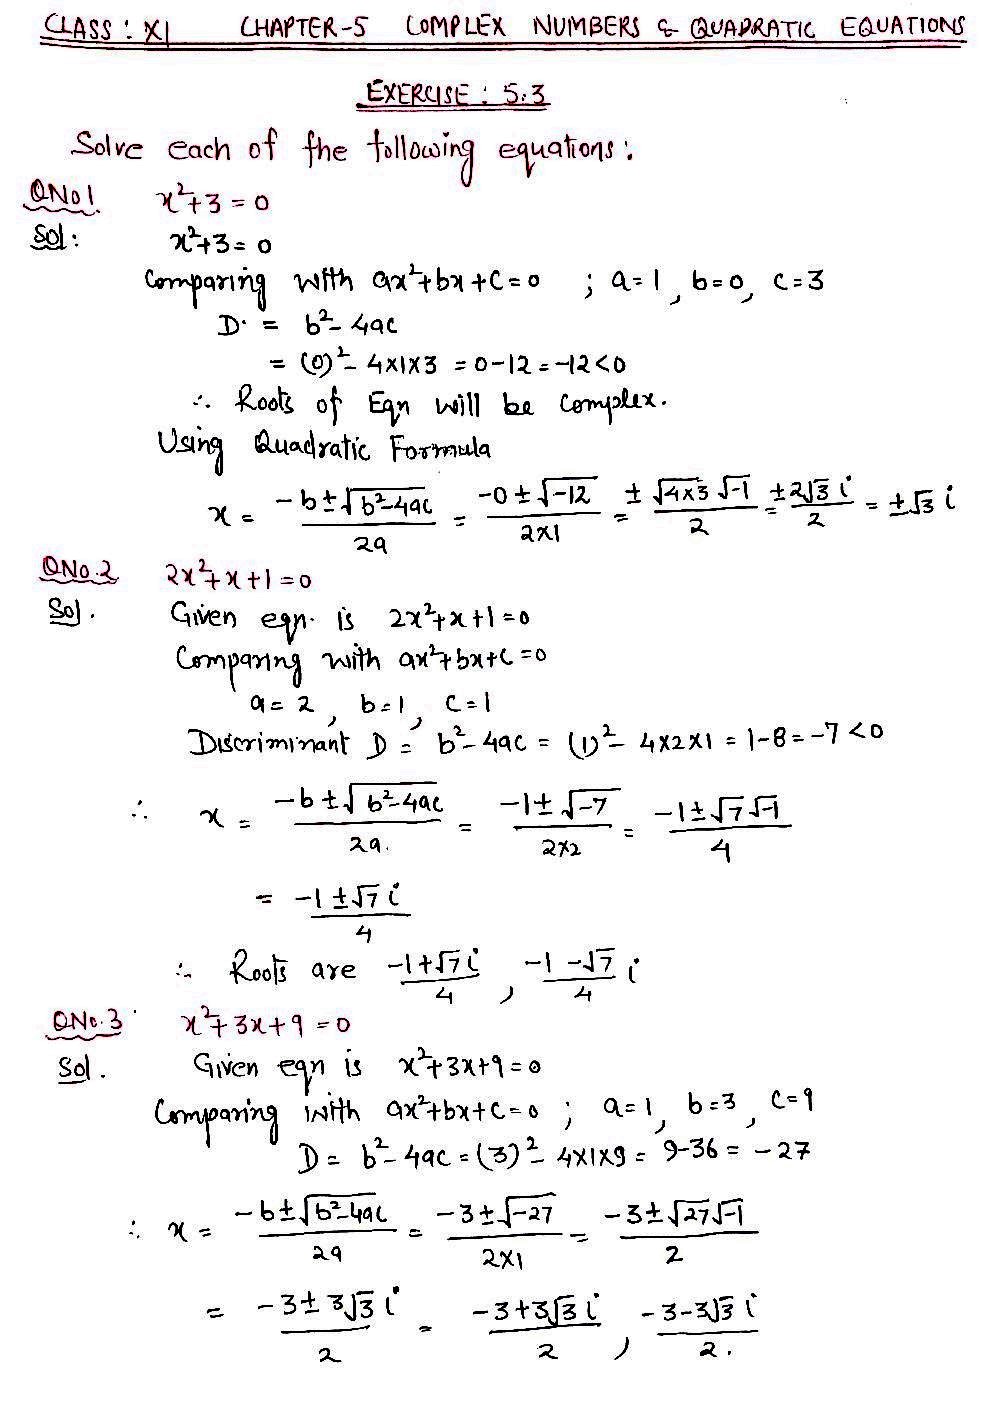 CLASS : XI CHAPTER-5 COMPLEX NUMBERS & QUADRATIC EQUATIONS
EXERCISE : 5.3
Solve each of the following equations :
QNo1 x²+3=0
Sol: x²+3=0
Comparing with ax²+bx+c=0 ; a=1, b=0, c=3
D = b²-4ac
= (0)²-4×1×3 = 0-12 = -12<0
∴ Roots of Eqn will be complex.
Using Quadratic Formula
x = (-b±√(b²-4ac))/2a = (-0±√-12)/(2×1) = ±(√(4×3) √-1)/2 = (±2√3 i)/2 = ±√3 i
QNo.2 2x²+x+1=0
Sol. Given eqn. is 2x²+x+1=0
Comparing with ax²+bx+c=0
a=2, b=1, c=1
Discriminant D = b²-4ac = (1)²-4×2×1 = 1-8 = -7<0
∴ x = (-b±√(b²-4ac))/2a. = (-1±√-7)/(2×2) = (-1±√7 √-1)/4
= (-1±√7 i)/4
∴ Roots are (-1+√7 i)/4 , (-1-√7)/4 i
QNo.3 x²+3x+9=0
Sol. Given eqn is x²+3x+9=0
Comparing with ax²+bx+c=0 ; a=1, b=3, c=9
D = b²-4ac = (3)²-4×1×9 = 9-36 = -27
∴ x = (-b±√(b²-4ac))/2a = (-3±√-27)/(2×1) = (-3±√27 √-1)/2
= (-3±3√3 i)/2 = (-3+3√3 i)/2 , (-3-3√3 i)/2.